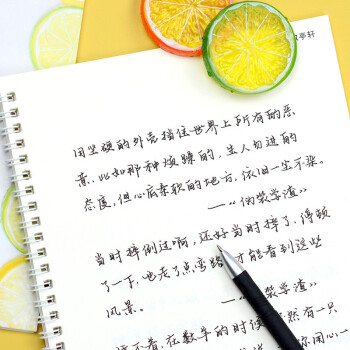 亭轩
用坚硬的外壳挡住世界上所有的恶
意.比如那种烦躁的,生人勿进的
态度,但心底柔软的地方,依旧一尘不染。
——“伪装学渣”
当时摔倒过啊,还好当时摔了,停顿
了一下,也走了点弯路,才能看到这些
风景。 ——“装学渣”
不着,在数羊的时候 然有一只
你用心一